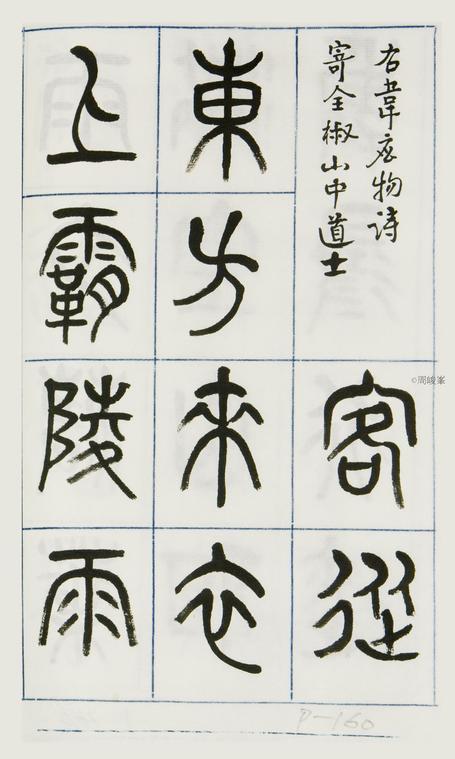 右韋應物詩
寄全椒山中道士
客從
東方來衣
上霸陵雨
©周峻峯
P-160